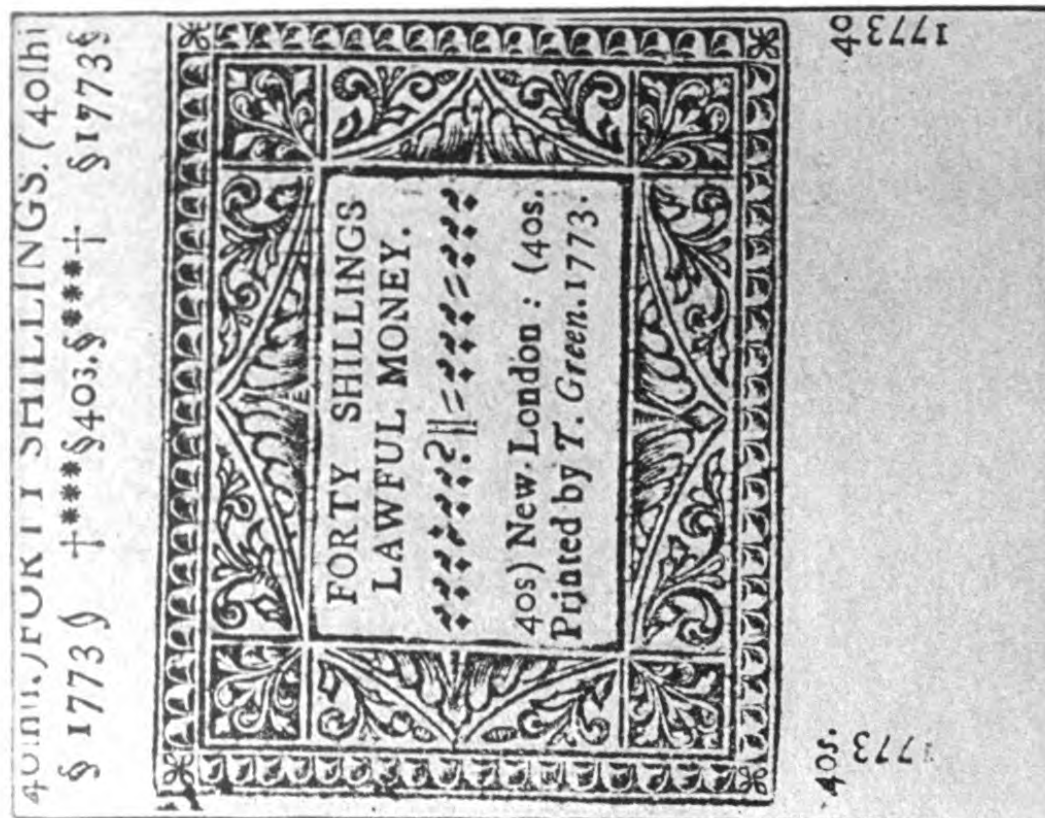 FORTY SHILLINGS. (40
§ 1773 § †***§403.§***† §1773§
FORTY SHILLINGS
LAWFUL MONEY.
40s) New-London : (40s.
Printed by T. Green. 1773.
40s. 40
1773 1773